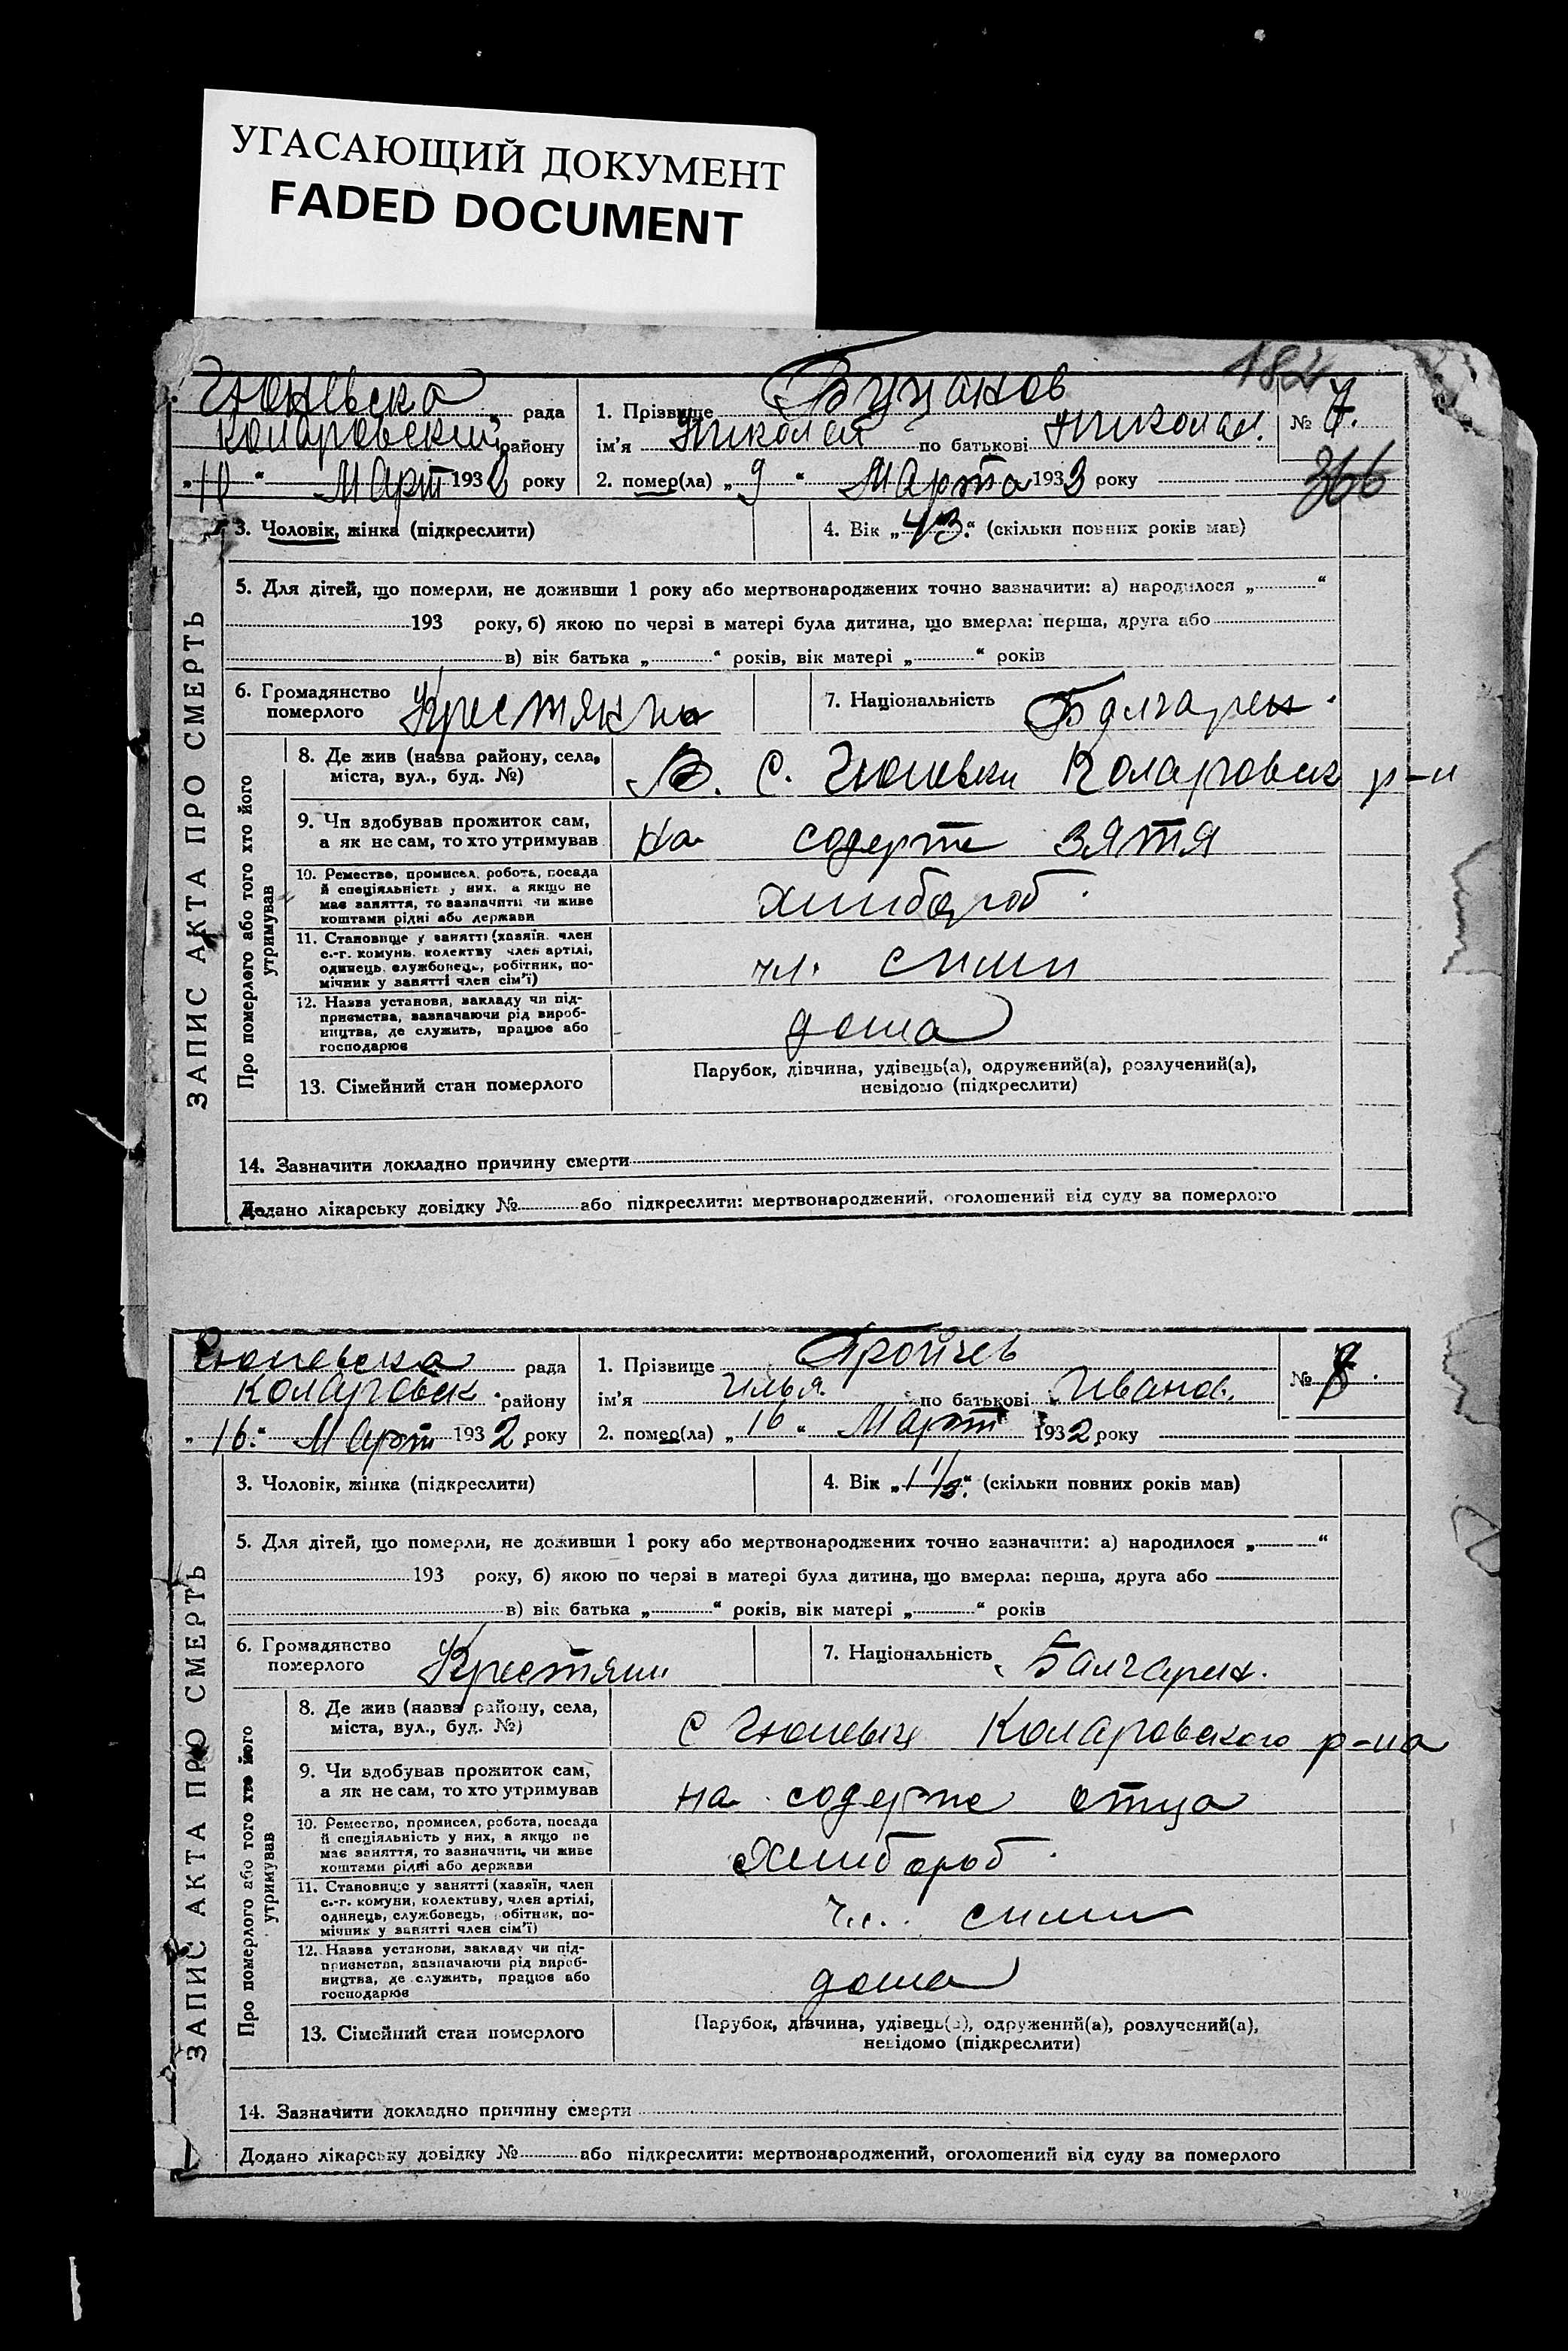 УГАСАЮЩИЙ ДОКУМЕНТ
FADED DOCUMENT
182
Гюневска рада
Коларовский району
„10“ Март 193 року
1. Прізвище
ім'я Николай по батькові Николаев.
2. помер(ла) „9“ Марта 1933 року
№ 7.
366
3. Чоловік, жінка (підкреслити)
4. Вік „43“ (скільки повних років мав)
5. Для дітей, що померли, не доживши 1 року або мертвонароджених точно зазначити: а) народилося „ “
193 року, б) якою по черзі в матері була дитина, що вмерла: перша, друга або
в) вік батька „ “ років, вік матері „ “ років
6. Громадянство
померлого
Крестянин
7. Національність Балгарен.
ЗАПИС АКТА ПРО СМЕРТЬ
Про померлого або того хто його
утримував
8. Де жив (назва району, села,
міста, вул., буд. №)
В. С. Гюневки Коларовск р-н
9. Чи здобував прожиток сам,
а як не сам, то хто утримував
на содерже зятя
10. Ремество, промисел, робота, посада
й спеціяльність у них, а якщо не
має заняття, то зазначити чи живе
коштами рідні або держави
Хлибороб.
11. Становище у занятті (хазяїн, член
с.-г. комуни, колективу, член артілі,
одинець, службовець, робітник, по-
мічник у занятті член сім'ї)
чл. сими
12. Назва установи, закладу чи під-
приємства, зазначаючи рід вироб-
ництва, де служить, працює або
господарює
дома
13. Сімейний стан померлого
Парубок, дівчина, удівець(а), одружений(а), розлучений(а),
невідомо (підкреслити)
14. Зазначити докладно причину смерти
Додано лікарську довідку № або підкреслити: мертвонароджений, оголошений від суду за померлого
Гюневска рада
Коларовск району
„16“ Март 1932 року
1. Прізвище
ім'я Илья по батькові Иванов.
2. помер(ла) „16“ Март 1932 року
№ 8.
3. Чоловік, жінка (підкреслити)
4. Вік „1 1/3“ (скільки повних років мав)
5. Для дітей, що померли, не доживши 1 року або мертвонароджених точно зазначити: а) народилося „ “
193 року, б) якою по черзі в матері була дитина, що вмерла: перша, друга або
в) вік батька „ “ років, вік матері „ “ років
6. Громадянство
померлого
Крестянин
7. Національність Балгарин.
ЗАПИС АКТА ПРО СМЕРТЬ
Про померлого або того хто його
утримував
8. Де жив (назва району, села,
міста, вул., буд. №)
С Гюневки Коларовского р-на
9. Чи здобував прожиток сам,
а як не сам, то хто утримував
на содерже отца
10. Ремество, промисел, робота, посада
й спеціяльність у них, а якщо не
має заняття, то зазначити, чи живе
коштами рідні або держави
Хлибороб.
11. Становище у занятті (хазяїн, член
с.-г. комуни, колективу, член артілі,
одинець, службовець, робітник, по-
мічник у занятті член сім'ї)
чл. сими
12. Назва установи, закладу чи під-
приємства, зазначаючи рід вироб-
ництва, де служить, працює або
господарює
дома
13. Сімейний стан померлого
Парубок, дівчина, удівець(а), одружений(а), розлучений(а),
невідомо (підкреслити)
14. Зазначити докладно причину смерти
Додано лікарську довідку № або підкреслити: мертвонароджений, оголошений від суду за померлого